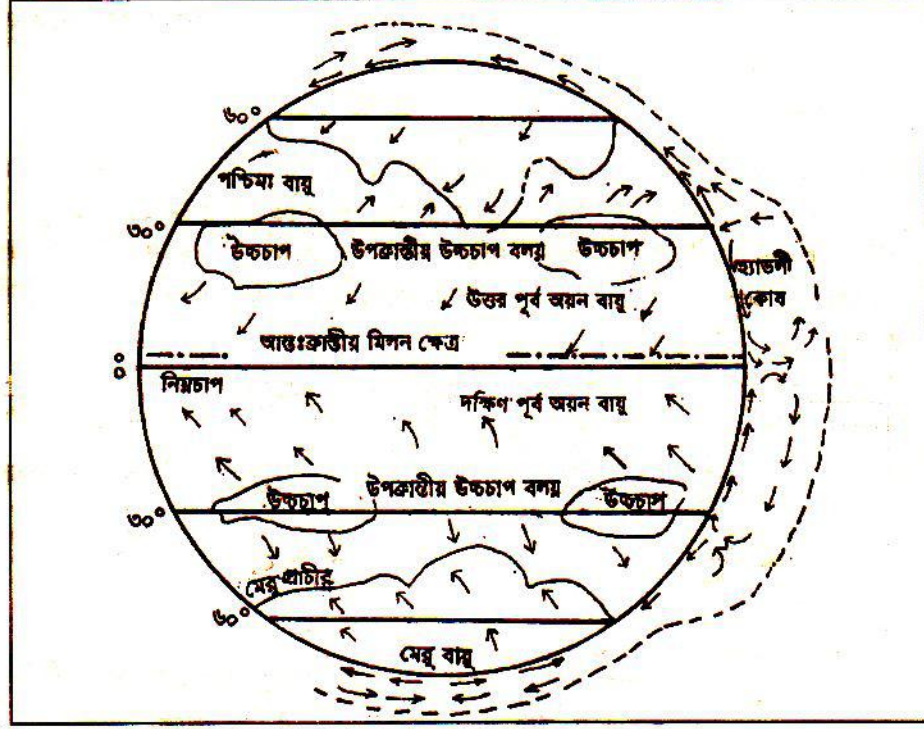 ৬০°
পশ্চিমা বায়ু
৩০°
উচ্চচাপ উপক্রান্তীয় উচ্চচাপ বলয় উচ্চচাপ
হ্যাডলী
কোষ
উত্তর পূর্ব অয়ন বায়ু
আন্তঃক্রান্তীয় মিলন ক্ষেত্র
০
নিম্নচাপ
দক্ষিণ পূর্ব অয়ন বায়ু
উচ্চচাপ উপক্রান্তীয় উচ্চচাপ বলয় উচ্চচাপ
৩০°
মেরু প্রাচীর
৬০°
মেরু বায়ু